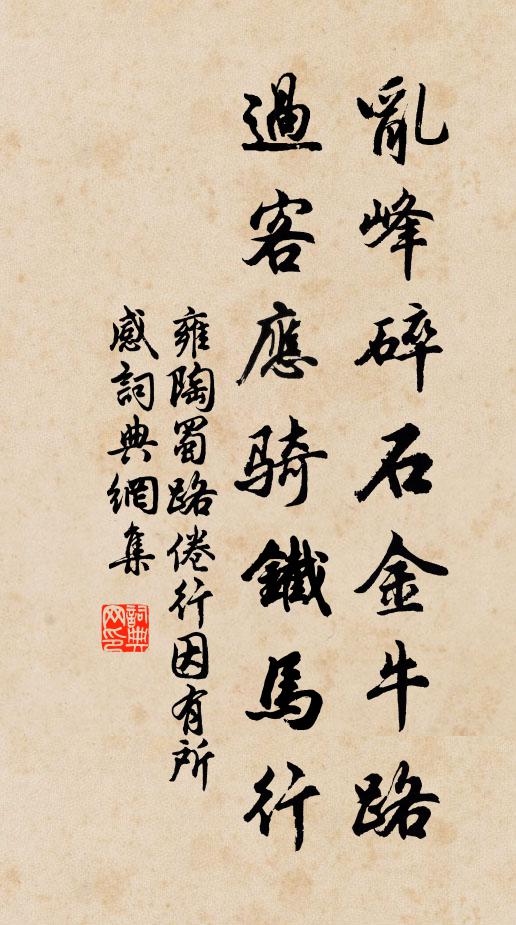 亂峰碎石金牛路
過客應騎鐵馬行
雍陶蜀路倦行因有所
感詞典網集
詞典
网印